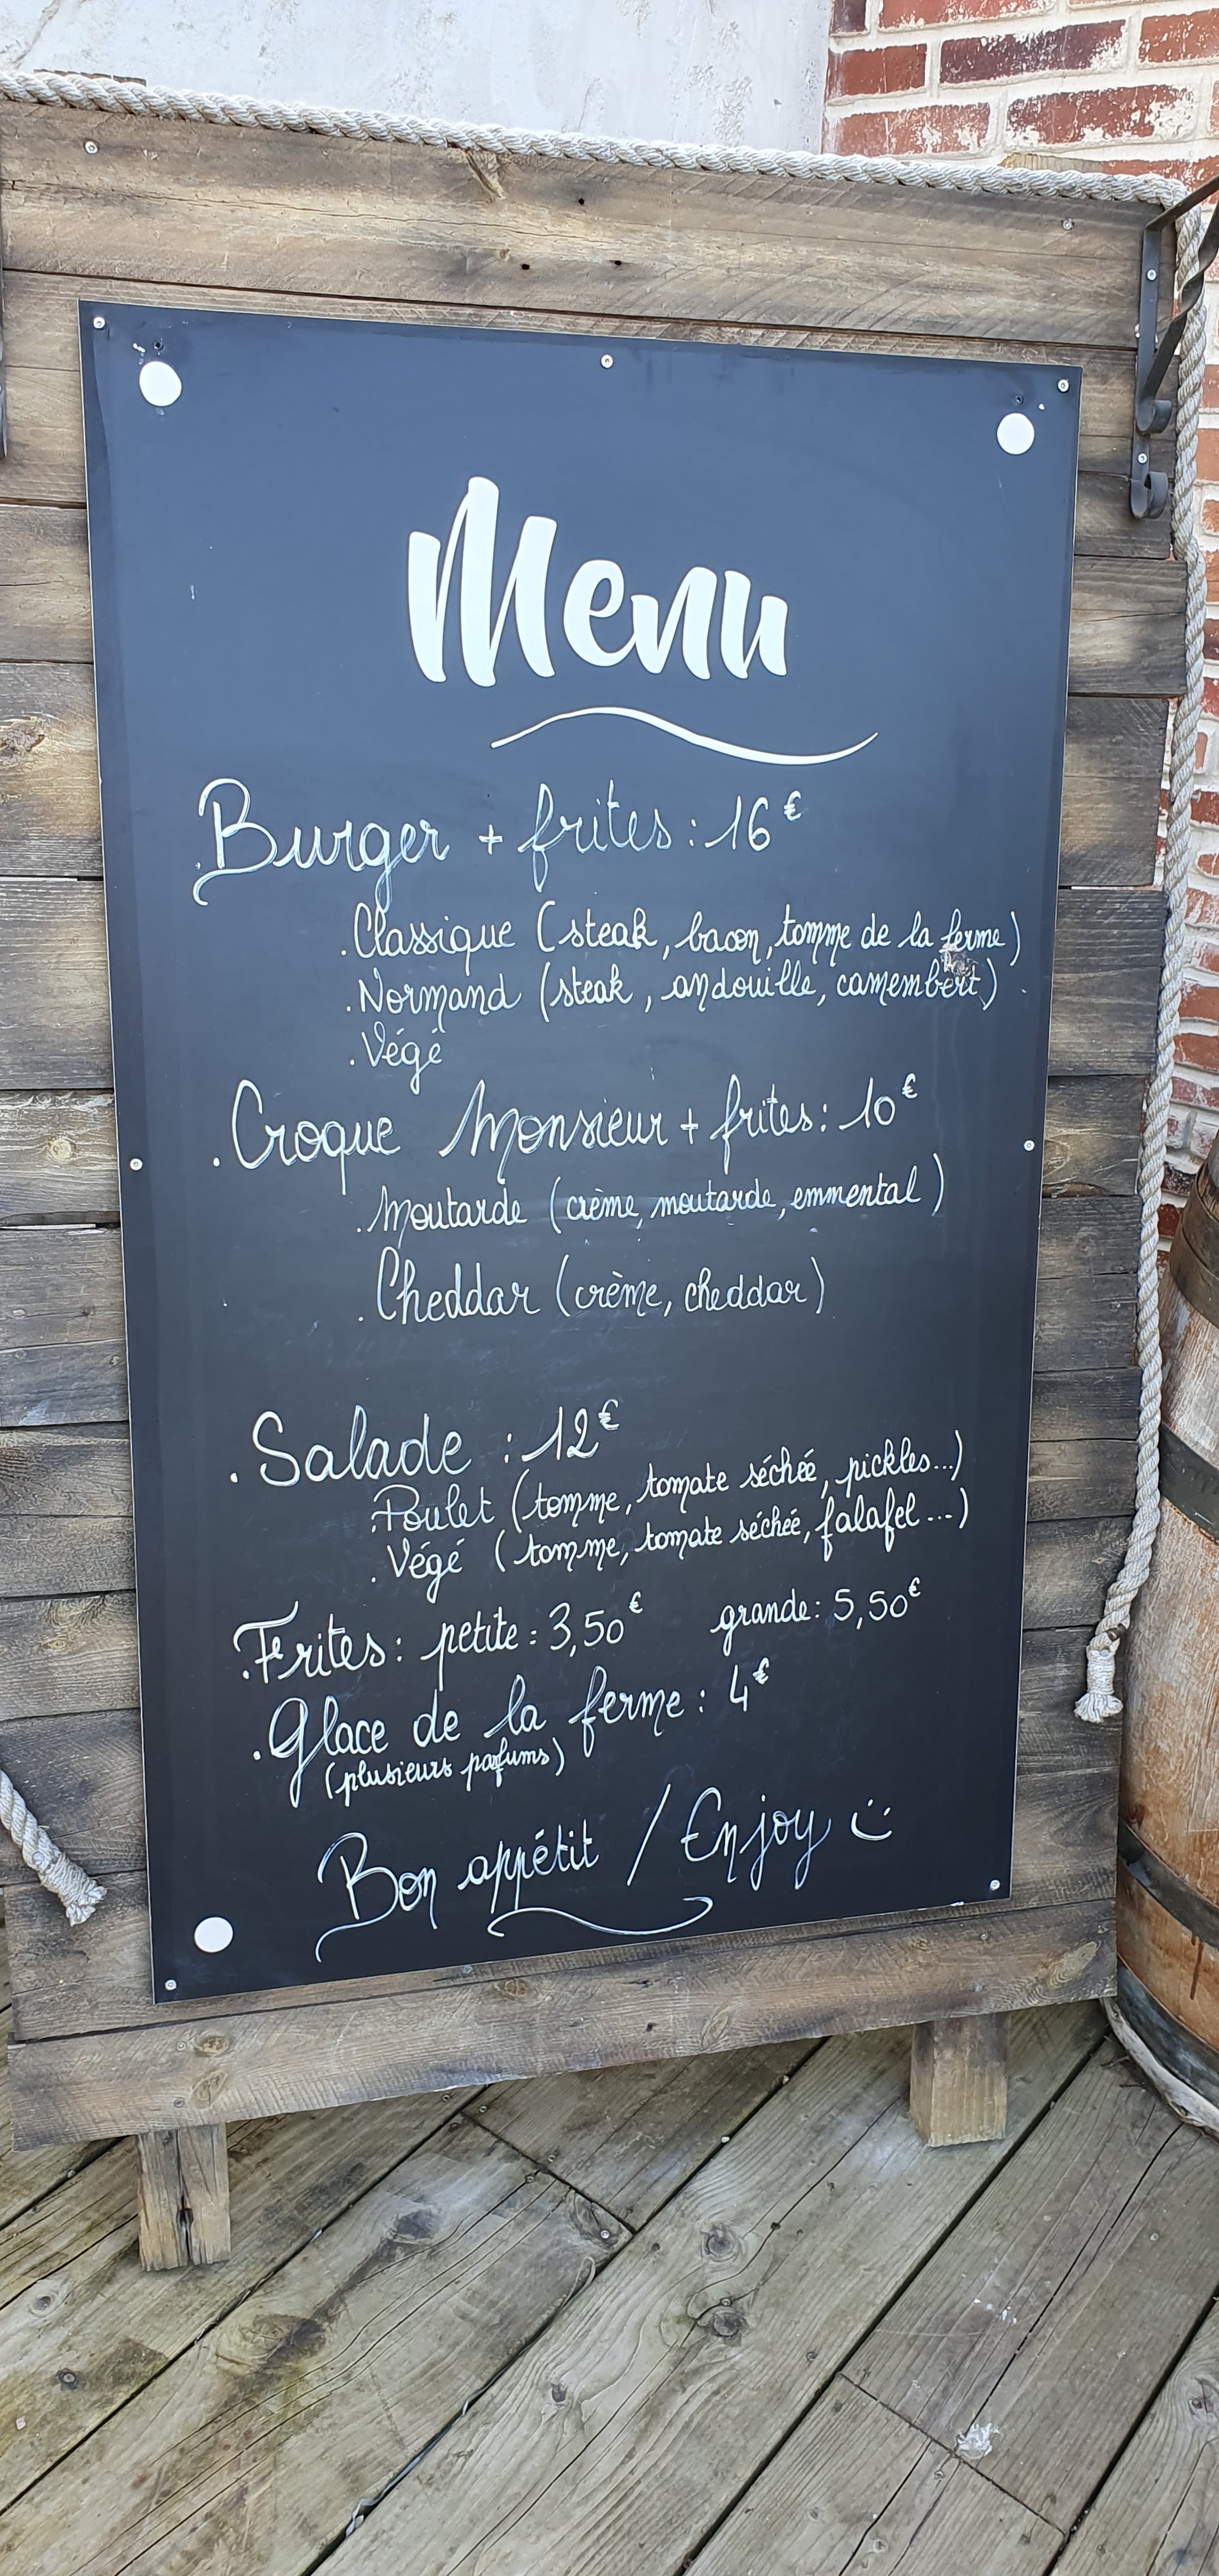 Menu
. Burger + frites : 16€
. Classique (steak, bacon, tomme de la ferme)
. Normand (steak, andouille, camembert)
. Végé
. Croque Monsieur + frites : 10€
. Moutarde (crème, moutarde, emmental)
. Cheddar (crème, cheddar)
. Salade : 12€
. Poulet (tomme, tomate séchée, pickles...)
. Végé (tomme, tomate séchée, falafel ...)
. Frites : petite : 3,50€ grande : 5,50€
. Glace de la ferme : 4€
(plusieurs parfums)
Bon appétit / Enjoy :)